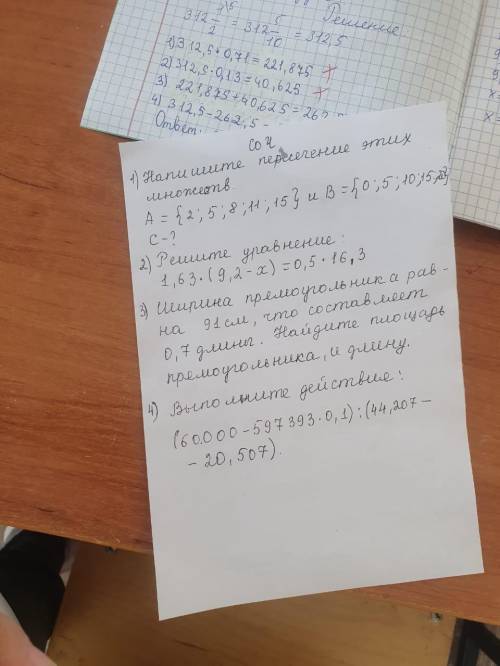 Решение
312 1\5/2 = 312 5/10 = 312,5
1) 312,5·0,71=221,875
2) 312,5·0,13=40,625
3) 221,875+40,625=262
4) 312,5-262,5-
Ответ:
СОЧ
1) Напишите пересечение этих
множеств.
А = {2; 5; 8; 11; 15} и В = {0; 5; 10; 15;
С-?
2) Решите уравнение:
1,63·(9,2-х)=0,5·16,3
3) Ширина прямоугольника рав-
на 91 см, что составляет
0,7 длины. Найдите площадь
прямоугольника, и длину.
4) Выполните действие:
(60.000-597393·0,1):(44,207-
-20,507).